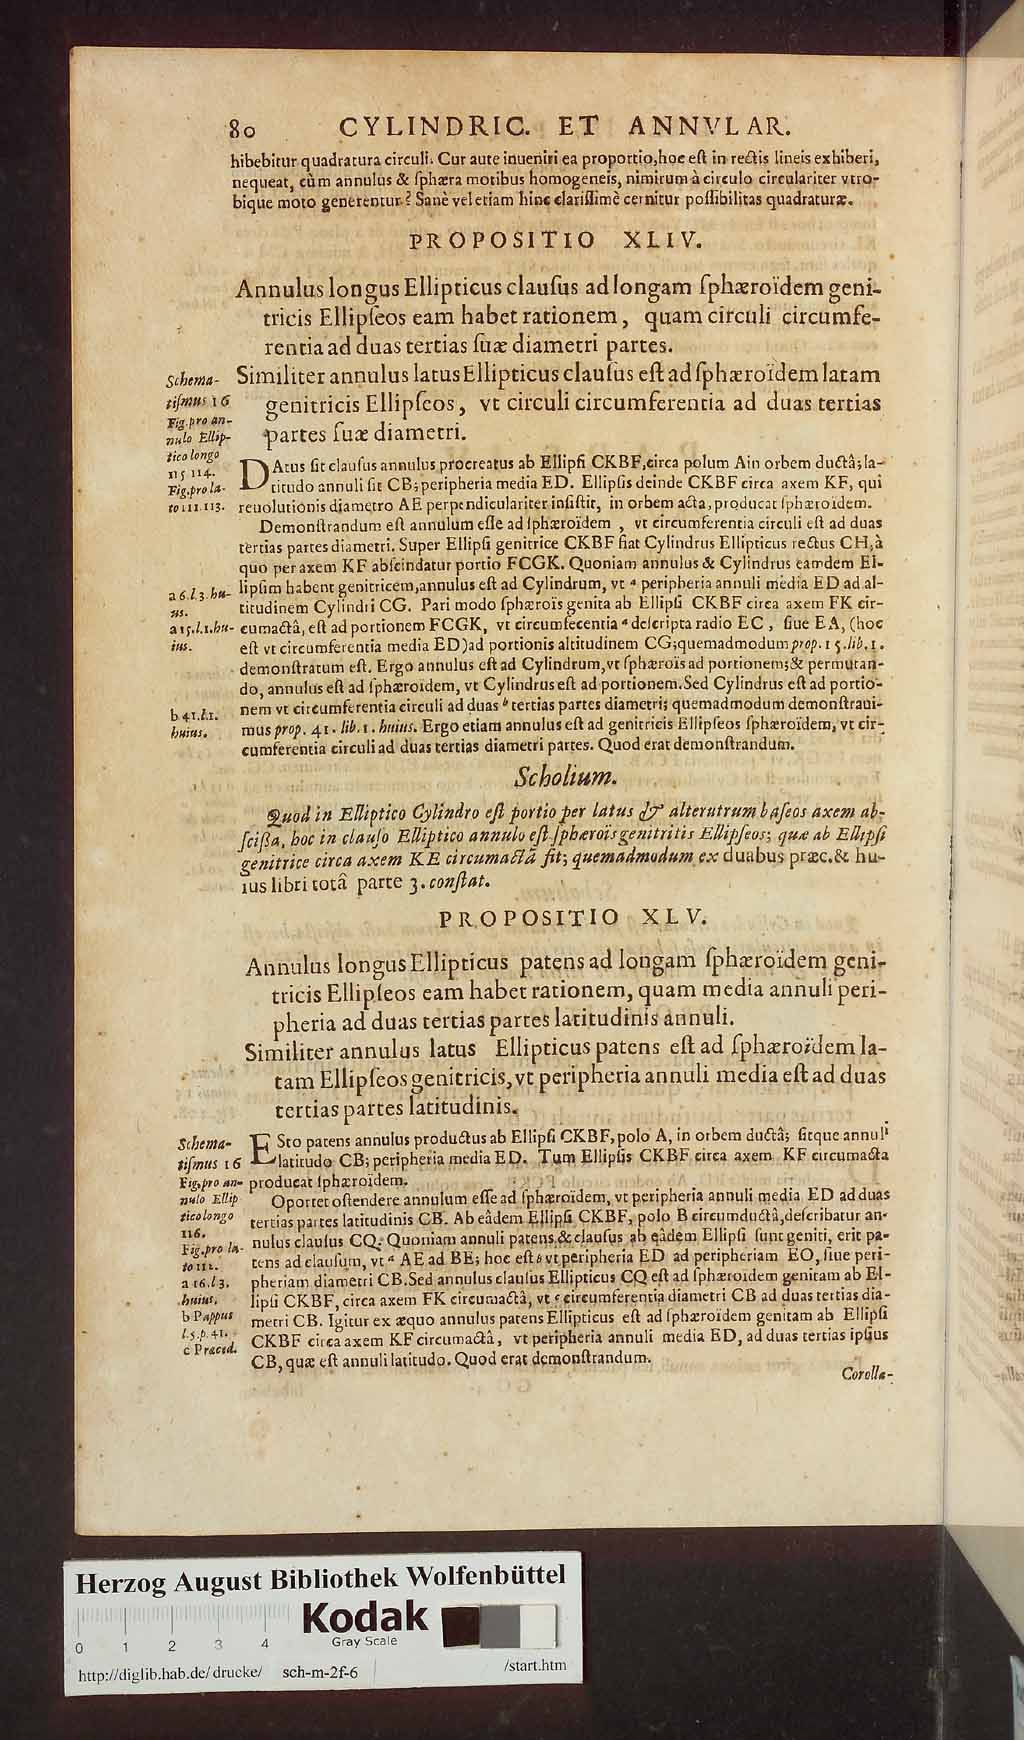 80 CYLINDRIC. ET ANNVLAR.
hibebitur quadratura circuli. Cur aute inueniri ea proportio, hoc est in rectis lineis exhiberi,
nequeat, cùm annulus & sphæra motibus homogeneis, nimirum à circulo circulariter vtro-
bique moto generentur? Sanè vel etiam hinc clarissimè cernitur possibilitas quadraturæ.
PROPOSITIO XLIV.
Annulus longus Ellipticus clausus ad longam sphæroïdem geni-
tricis Ellipseos eam habet rationem, quam circuli circumfe-
rentia ad duas tertias suæ diametri partes.
Similiter annulus latus Ellipticus clausus est ad sphæroïdem latam
genitricis Ellipseos, vt circuli circumferentia ad duas tertias
partes suæ diametri.
Schema-
tismus 16
Fig. pro an-
nulo Ellip-
tico longo
115 114.
Fig. pro la-
to 111.113.
DAtus sit clausus annulus procreatus ab Ellipsi CKBF, circa polum A in orbem ductâ; la-
titudo annuli sit CB; peripheria media ED. Ellipsis deinde CKBF circa axem KF, qui
reuolutionis diametro AE perpendiculariter insistit, in orbem acta, producat sphæroïdem.
Demonstrandum est annulum esse ad sphæroïdem, vt circumferentia circuli est ad duas
tertias partes diametri. Super Ellipsi genitrice CKBF fiat Cylindrus Ellipticus rectus CH, à
quo per axem KF abscindatur portio FCGK. Quoniam annulus & Cylindrus eamdem El-
lipsim habent genitricem, annulus est ad Cylindrum, vt a peripheria annuli media ED ad al-
titudinem Cylindri CG. Pari modo sphæroïs genita ab Ellipsi CKBF circa axem FK cir-
cumactâ, est ad portionem FCGK, vt circumferentia a descripta radio EC, siue EA, (hoc
est vt circumferentia media ED) ad portionis altitudinem CG; quemadmodum prop. 15. lib. 1.
demonstratum est. Ergo annulus est ad Cylindrum, vt sphæroïs ad portionem; & permutan-
do, annulus est ad sphæroïdem, vt Cylindrus est ad portionem. Sed Cylindrus est ad portio-
nem vt circumferentia circuli ad duas b tertias partes diametri; quemadmodum demonstraui-
mus prop. 41. lib. 1. huius. Ergo etiam annulus est ad genitricis Ellipseos sphæroïdem, vt cir-
cumferentia circuli ad duas tertias diametri partes. Quod erat demonstrandum.
a 6. l. 3. hu-
us.
a 15. l. 1. hu-
ius.
b 41. l. 1.
huius.
Scholium.
Quod in Elliptico Cylindro est portio per latus & alterutrum baseos axem ab-
scißa, hoc in clauso Elliptico annulo est sphæroïs genitritis Ellipseos; quæ ab Ellipsi
genitrice circa axem KE circumactâ fit; quemadmodum ex duabus præc. & hu-
ius libri totâ parte 3. constat.
PROPOSITIO XLV.
Annulus longus Ellipticus patens ad longam sphæroïdem geni-
tricis Ellipseos eam habet rationem, quam media annuli peri-
pheria ad duas tertias partes latitudinis annuli.
Similiter annulus latus Ellipticus patens est ad sphæroïdem la-
tam Ellipseos genitricis, vt peripheria annuli media est ad duas
tertias partes latitudinis.
Schema-
tismus 16
Fig. pro an-
nulo Ellip
tico longo
116.
Fig. pro la-
to 112.
a 16. l. 3.
huius.
b Pappus
l. 5. p. 41.
c Præced.
ESto patens annulus productus ab Ellipsi CKBF, polo A, in orbem ductâ; sitque annuli
latitudo CB; peripheria media ED. Tum Ellipsis CKBF circa axem KF circumacta
producat sphæroïdem.
Oportet ostendere annulum esse ad sphæroïdem, vt peripheria annuli media ED ad duas
tertias partes latitudinis CB. Ab eâdem Ellipsi CKBF, polo B circumductâ, describatur an-
nulus clausus CQ. Quoniam annuli patens & clausus ab eâdem Ellipsi sunt geniti, erit pa-
tens ad clausum, vt a AE ad BE; hoc est b vt peripheria ED ad peripheriam EO, siue peri-
pheriam diametri CB. Sed annulus clausus Ellipticus CQ est ad sphæroïdem genitam ab El-
lipsi CKBF, circa axem FK circumactâ, vt c circumferentia diametri CB ad duas tertias dia-
metri CB. Igitur ex æquo annulus patens Ellipticus est ad sphæroïdem genitam ab Ellipsi
CKBF circa axem KF circumactâ, vt peripheria annuli media ED, ad duas tertias ipsius
CB, quæ est annuli latitudo. Quod erat demonstrandum.
Corolla-
Herzog August Bibliothek Wolfenbüttel
Kodak
Gray Scale
0 1 2 3 4
http://diglib.hab.de/drucke/ sch-m-2f-6 /start.htm